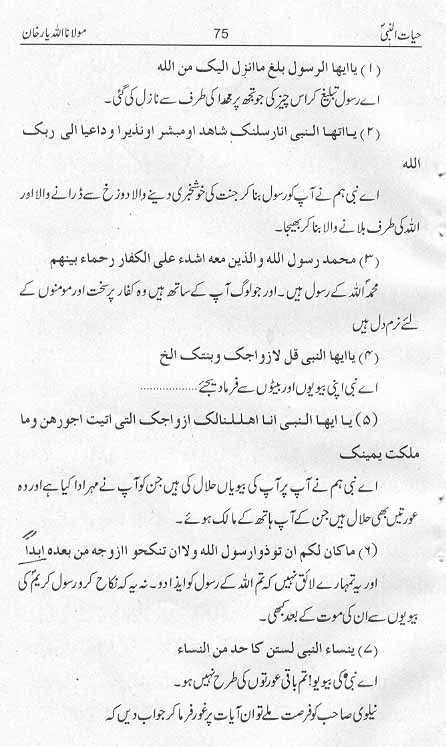 حیات النبیؐ 75 مولانا اللہ یار خان
(۱) یاایها الرسول بلغ ماانزل الیک من الله
اے رسول تبلیغ کر اس چیز کی جو تجھ پر خدا کی طرف سے نازل کی گئی۔
(۲) یااتها النبی انارسلنک شاهد اومبشر اونذیرا وداعیا الی ربک
الله
اے نبی ہم نے آپ کو رسول بنا کر جنت کی خوشخبری دینے والا دوزخ سے ڈرانے والا اور
اللہ کی طرف بلانے والا بنا کر بھیجا۔
(۳) محمد رسول الله والذین معه اشدء علی الکفار رحماء بینهم
محمدؐ اللہ کے رسول ہیں۔ اور جو لوگ آپ کے ساتھ ہیں وہ کفار پر سخت اور مومنوں کے
لئے نرم دل ہیں
(۴) یاایها النبی قل لازواجک وبنتک الخ
اے نبی اپنی بیویوں اور بیٹوں سے فرما دیجئے..................
(۵) یا ایها النبی انا اهللنالک ازواجک التی اتیت اجورهن وما
ملکت یمینک
اے نبی ہم نے آپ پر آپ کی بیویاں حلال کی ہیں جن کو آپ نے مہر ادا کیا ہے اور وہ
عورتیں بھی حلال ہیں جن کے آپ ہاتھ کے مالک ہوئے۔
(۶) ماکان لکم ان توذوارسول الله ولاان تنکحو اازوجه من بعده ابداً
اور یہ تمہارے لائق نہیں کہ تم اللہ کے رسول کو ایذا دو۔ نہ یہ کہ نکاح کرو رسول کریمؐ کی
بیویوں سے ان کی موت کے بعد کبھی۔
(۷) ینساء النبی لستن کاحد من النساء
اے نبیؐ کی بیویو! تم باقی عورتوں کی طرح نہیں ہو۔
نیلوی صاحب کو فرصت ملے تو ان آیات پر غور فرما کر جواب دیں کہ